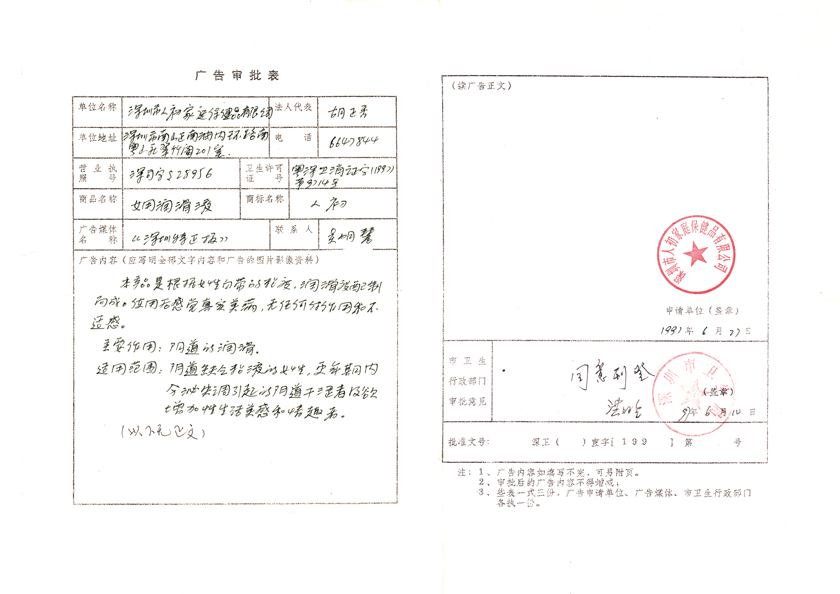 广告审批表
单位名称 深圳市人初家庭保健品有限公司 法人代表 胡正勇
单位地址 深圳市南山区南油内环路南 电话 6647844
粤山花翠竹阁201室
营业执照号 深司字S28956 卫生许可证号 粤深卫消证字(1997)
第9714号
商品名称 女用润滑液 商标名称 人初
广告媒体名称 《深圳特区报》 联系人
广告内容(应写明全部文字内容和广告的图片影像资料)
本品是根据女性白带的粘度,润滑液配制
而成。使用后感觉真实美满,无任何付作用和不
适感。
主要作用:阴道的润滑。
适用范围:阴道缺乏粘液的女性,更年期内
分泌失调引起的阴道干涩者及欲
增加性生活美感和情趣者。
(以下无正文)
(续广告正文)
深圳市人初家庭保健品有限公司
申请单位(盖章)
1997年6月27日
市卫生
行政部门
审批意见
同意刊登
深圳市卫
(盖章)
97年6月10日
批准文号: 深卫( )宣字[199 ]第 号
注:1、广告内容如填写不完,可另附页。
2、审批后的广告内容不得增减;
3、些表一式三份,广告申请单位、广告媒体、市卫生行政部门
各执一份。